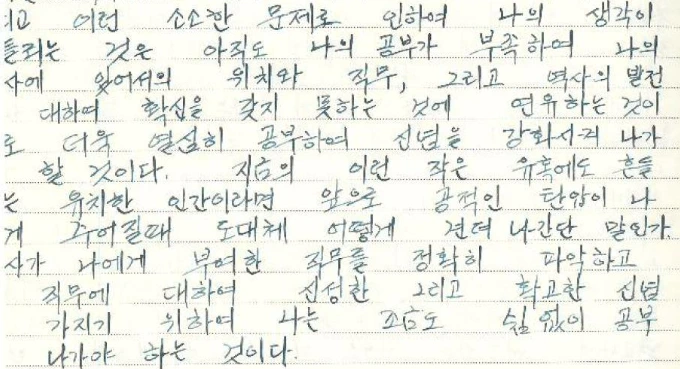 이고 이런 소소한 문제로 인하여 나의 생각이
흔들리는 것은 아직도 나의 공부가 부족하여 나의
사에 있어서의 위치와 직무, 그리고 역사의 발전
대하여 확신을 갖지 못하는 것에 연유하는 것이
로 더욱 열심히 공부하여 신념을 강화시켜 나가
할 것이다. 지금의 이런 작은 유혹에도 흔들
는 유치한 인간이라면 앞으로 공적인 탄압이 나
게 주어질때 도대체 어떻게 견뎌 나간단 말인가.
사가 나에게 부여한 직무를 정확히 파악하고
직무에 대하여 신성한 그리고 확고한 신념
가지기 위하여 나는 조금도 쉼없이 공부
나가야 하는 것이다.